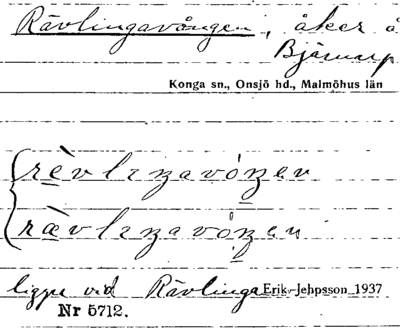 Rävlingavången, åker å
Bjärnarp
Konga sn., Onsjö hd., Malmöhus län
rèvlıŋavóŋen
ràvlıŋavóŋen
ligger vid Rävlinga Erik Jehpsson 1937
Nr 5712.